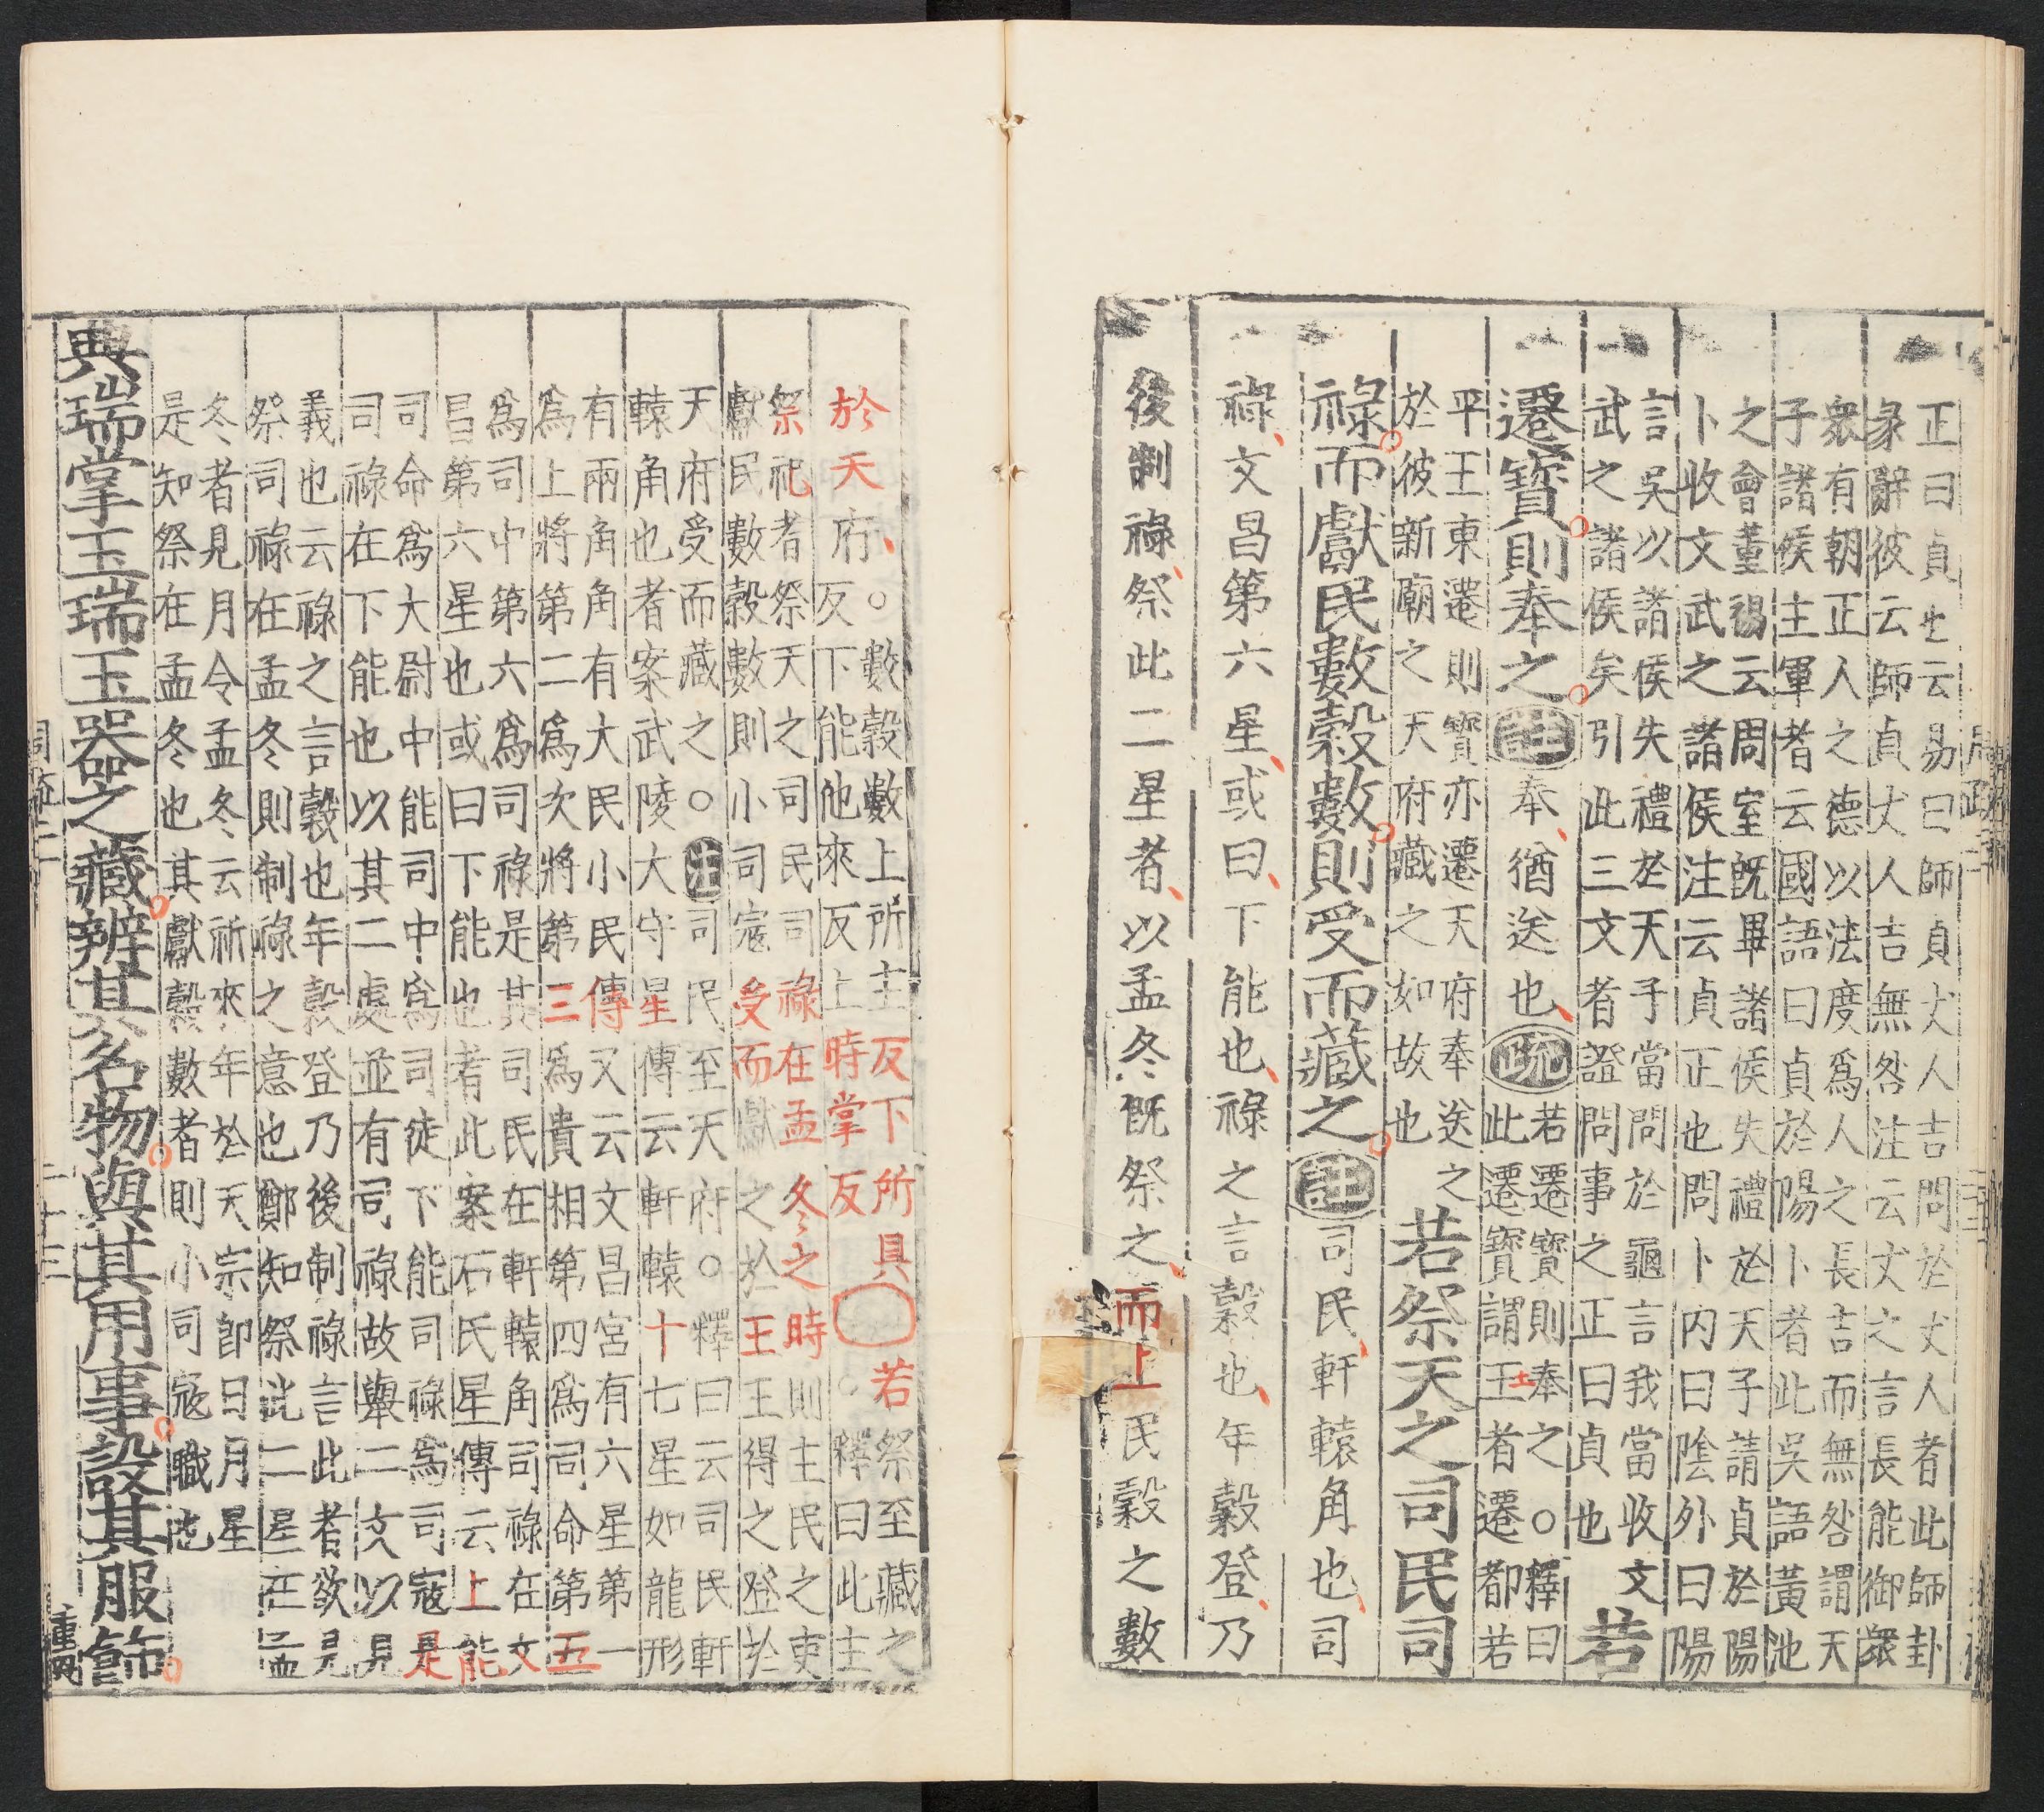 正曰貞也云易曰師貞丈人吉問於丈人者此師卦
彖辭彼云師貞丈人吉無咎注云丈之言長能御衆
衆有朝正人之德以法度爲人之長吉而無咎謂天
子諸侯主軍者云國語曰貞於陽卜者此吳語黃池
之會董褐云周室既畢諸侯失禮於天子請貞於陽
卜收文武之諸侯注云貞正也問卜內曰陰外曰陽
言吳以諸侯失禮於天子當問於龜言我當收文
武之諸侯矣引此三文者證問事之正曰貞也
若
遷寶則奉之
註
奉猶送也
疏
若遷寶則奉之○釋曰
此遷寶謂王者遷都若
平王東遷則寶亦遷天府奉送之
於彼新廟之天府藏之如故也
若祭天之司民司
祿而獻民數穀數則受而藏之
註
司民軒轅角也司
祿文昌第六星或曰下能也祿之言穀也年穀登乃
後制祿祭此二星者以孟冬既祭之而上民穀之數
於天府
○數穀數上所主反下所具
反下能他來反上時掌反
若祭至藏之
○釋曰此主
祭祀者祭天之司民司祿在孟冬之時則主民之吏
獻民數穀數則小司寇受而獻之於王王得之登於
天府受而藏之○注司民至天府○釋曰云司民軒
轅角也者案武陵大守星傳云軒轅十七星如龍形
有兩角角有大民小民傳又云文昌宮有六星第一
爲上將第二爲次將第三爲貴相第四爲司命第五
爲司中第六爲司祿是其司民在軒轅角司祿在文
昌第六星也或曰下能也者此案石氏星傳云上能
司命爲大尉中能司中爲司徒下能司祿爲司寇是
司祿在下能也以其二處並有司祿故舉二文以見
義也云祿之言穀也年穀登乃後制祿言此者欲見
祭司祿在孟冬則制祿之意也鄭知祭此二星在孟
冬者見月令孟冬云祈來年於天宗即日月星
是知祭在孟冬也其獻穀數者則小司寇職也
典瑞掌玉瑞玉器之藏辨其名物與其用事設其服飾